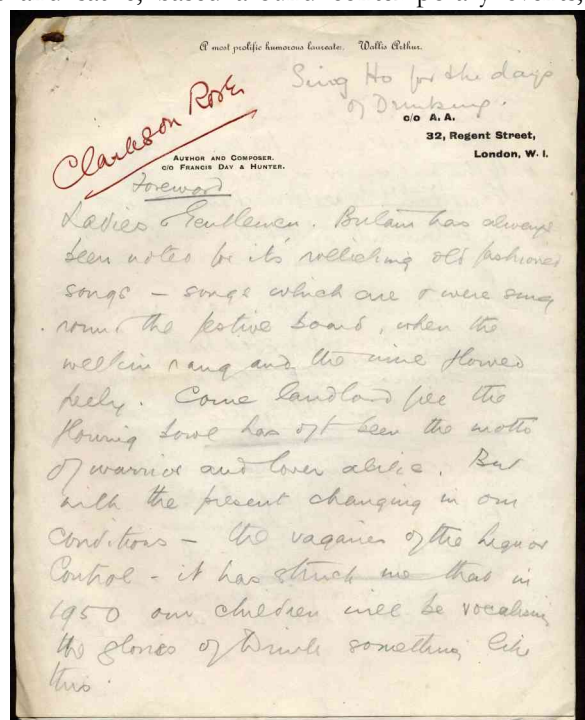 and satire, based around contemporary events,
A most prolific humorous laureate. Wallis Arthur.
Sing Ho for the days
of Drinking.
c/o A. A.
32, Regent Street,
London, W. 1.
Clarkson Rose
AUTHOR AND COMPOSER.
C/O FRANCIS DAY & HUNTER.
Foreword
Ladies & Gentlemen. Britain has always
been noted for it's rollicking old fashioned
songs – songs which are & were sung
round the festive board, when the
welkin rang and the wine flowed
freely. Come landlord fill the
flowing bowl has oft been the motto
of warrior and lover alike. But
with the present changing in our
conditions – the vagaries of the Liquor
Control – it has struck me that in
1950 our children will be vocalising
the glories of Drink something like
this